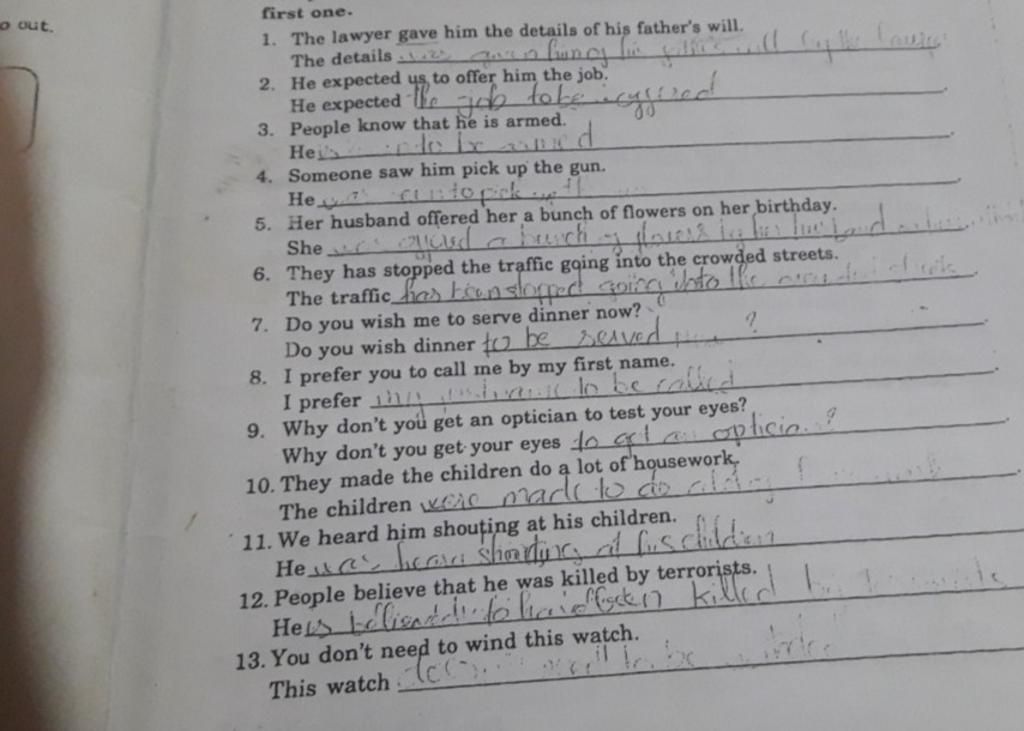 o out.
first one.
1. The lawyer gave him the details of his father's will.
The details
2. He expected us to offer him the job.
He expected the job to be
3. People know that he is armed.
He is to be armed
4. Someone saw him pick up the gun.
He was to pick up
5. Her husband offered her a bunch of flowers on her birthday.
She was offered a bunch of flowers by her husband
6. They has stopped the traffic going into the crowded streets.
The traffic has been stopped going into the
7. Do you wish me to serve dinner now?
Do you wish dinner to be served now ?
8. I prefer you to call me by my first name.
I prefer my to be called
9. Why don't you get an optician to test your eyes?
Why don't you get your eyes to get an ?
10. They made the children do a lot of housework.
The children were made to do
11. We heard him shouting at his children.
He was shouting at his children
12. People believe that he was killed by terrorists.
He is to have been killed
13. You don't need to wind this watch.
This watch to be